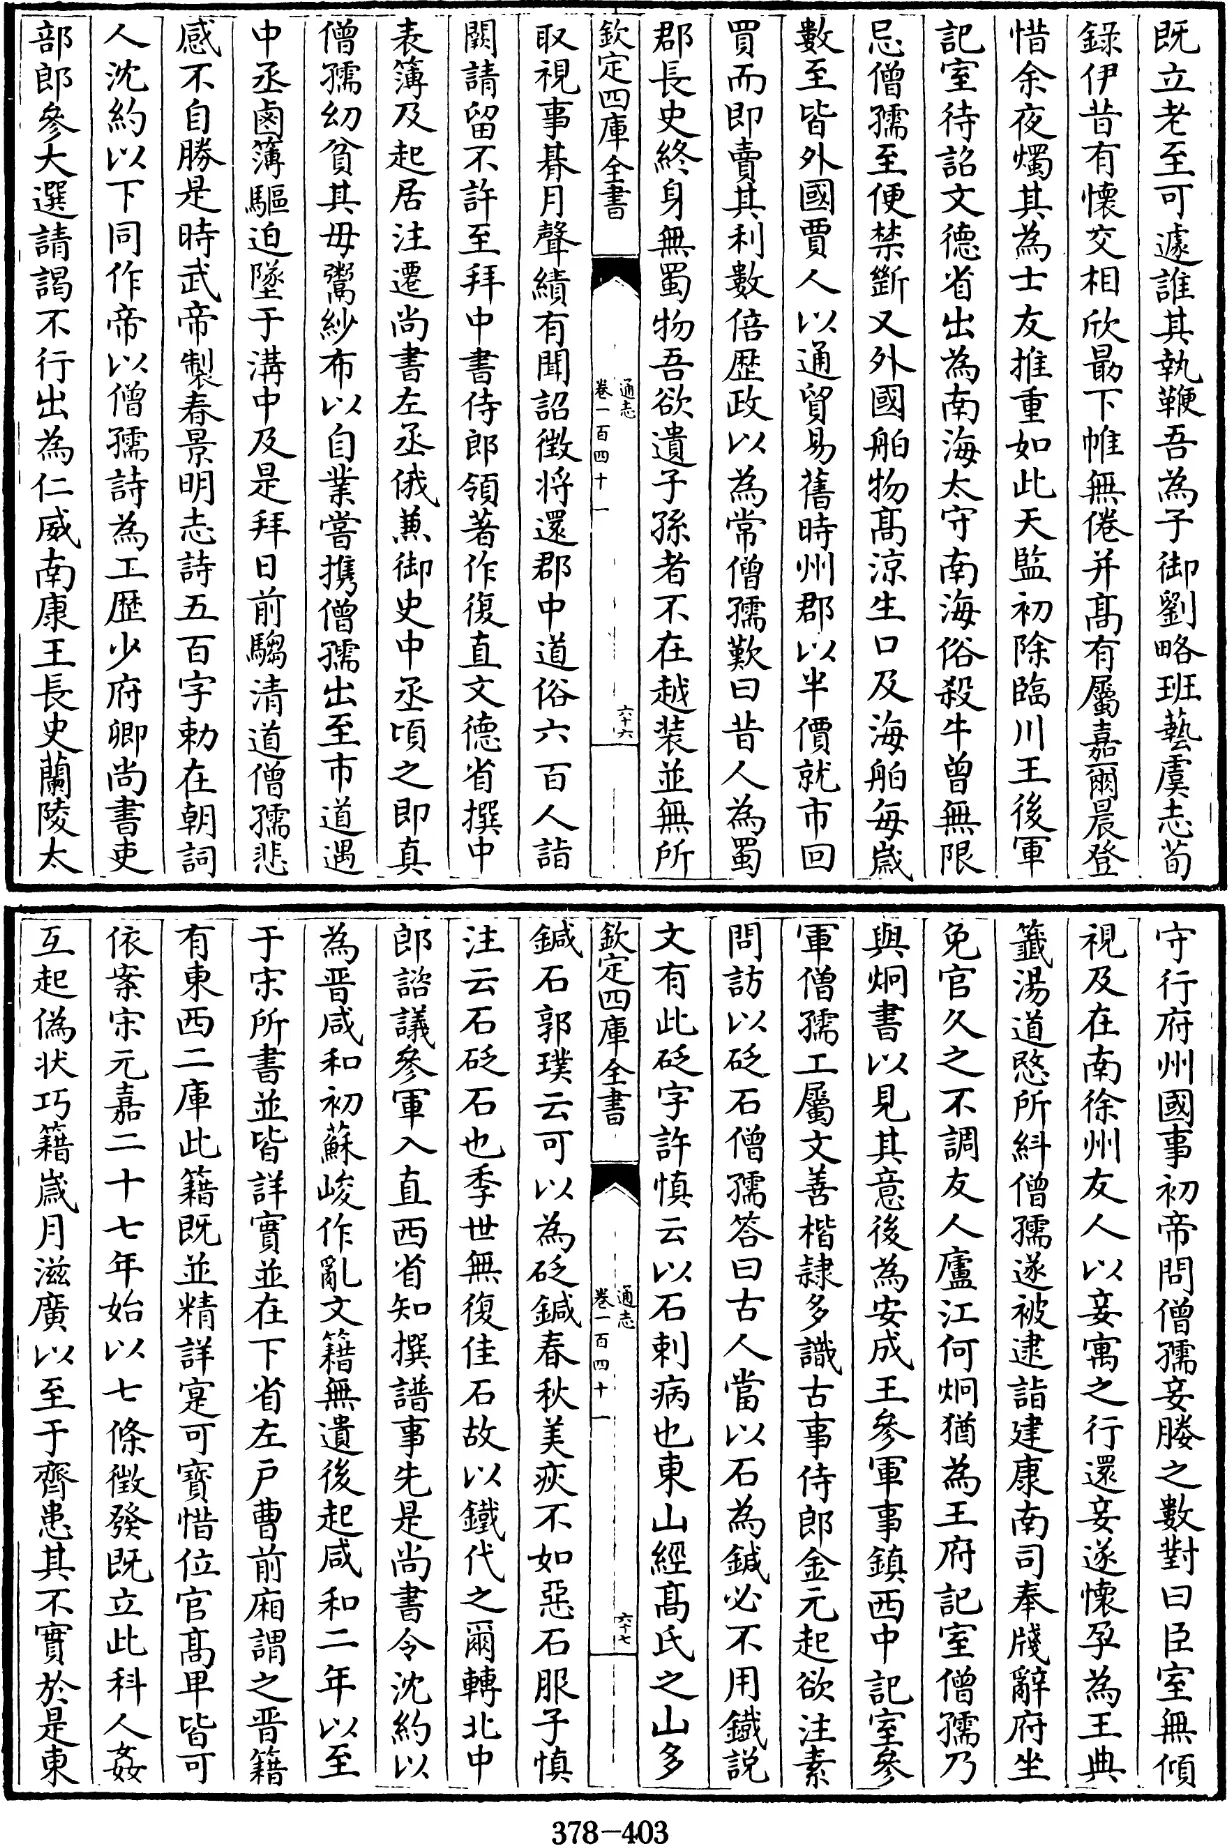 既立老至可遽誰其執鞭吾為子御劉略班藝虞志荀
錄伊昔有懷交相欣勗下帷無倦并髙有屬嘉爾晨登
惜余夜燭其為士友推重如此天監初除臨川王後軍
記室待詔文徳省出為南海太守南海俗殺牛曽無限
忌僧孺至便禁斷又外國舶物髙涼生口及海舶每嵗
數至皆外國賈人以通貿易舊時州郡以半價就市回
買而即賣其利數倍歴政以為常僧孺歎曰昔人為蜀
郡長史終身無蜀物吾欲遺子孫者不在越装並無所
欽定四庫全書
通志
卷一百四十一
六十六
取視事朞月聲績有聞詔徴将還郡中道俗六百人詣
闕請留不許至拜中書侍郎領著作復直文徳省撰中
表簿及起居注遷尚書左丞俄兼御史中丞頃之即真
僧孺幼貧其毋鬻紗布以自業嘗攜僧孺出至市道遇
中丞鹵簿驅迫墜于溝中及是拜日前騶清道僧孺悲
感不自勝是時武帝製春景明志詩五百字勅在朝詞
人沈約以下同作帝以僧孺詩為工歴少府卿尚書吏
部郎參大選請謁不行出為仁威南康王長史蘭陵太
守行府州國事初帝問僧孺妾媵之數對曰臣室無傾
視及在南徐州友人以妾寓之行還妾遂懐孕為王典
籤湯道愍所糾僧孺遂被逮詣建康南司奉牋辭府坐
免官久之不調友人廬江何炯猶為王府記室僧孺乃
與炯書以見其意後為安成王參軍事鎮西中記室參
軍僧孺工屬文善楷隷多識古事侍郎金元起欲注素
問訪以砭石僧孺答曰古人當以石為鍼必不用鐵説
文有此砭字許慎云以石刺病也東山經髙氏之山多
欽定四庫全書
通志
卷一百四十一
六十七
鍼石郭璞云可以為砭鍼春秋美疢不如惡石服子慎
注云石砭石也季世無復佳石故以鐵代之爾轉北中
郎諮議參軍入直西省知撰譜事先是尚書令沈約以
為晋咸和初蘇峻作亂文籍無遺後起咸和二年以至
于宋所書並皆詳實並在下省左户曹前廂謂之晋籍
有東西二庫此籍既並精詳寔可寳惜位官髙卑皆可
依案宋元嘉二十七年始以七條徴發既立此科人姦
互起偽狀巧籍嵗月滋廣以至于齊患其不實於是東
378-403